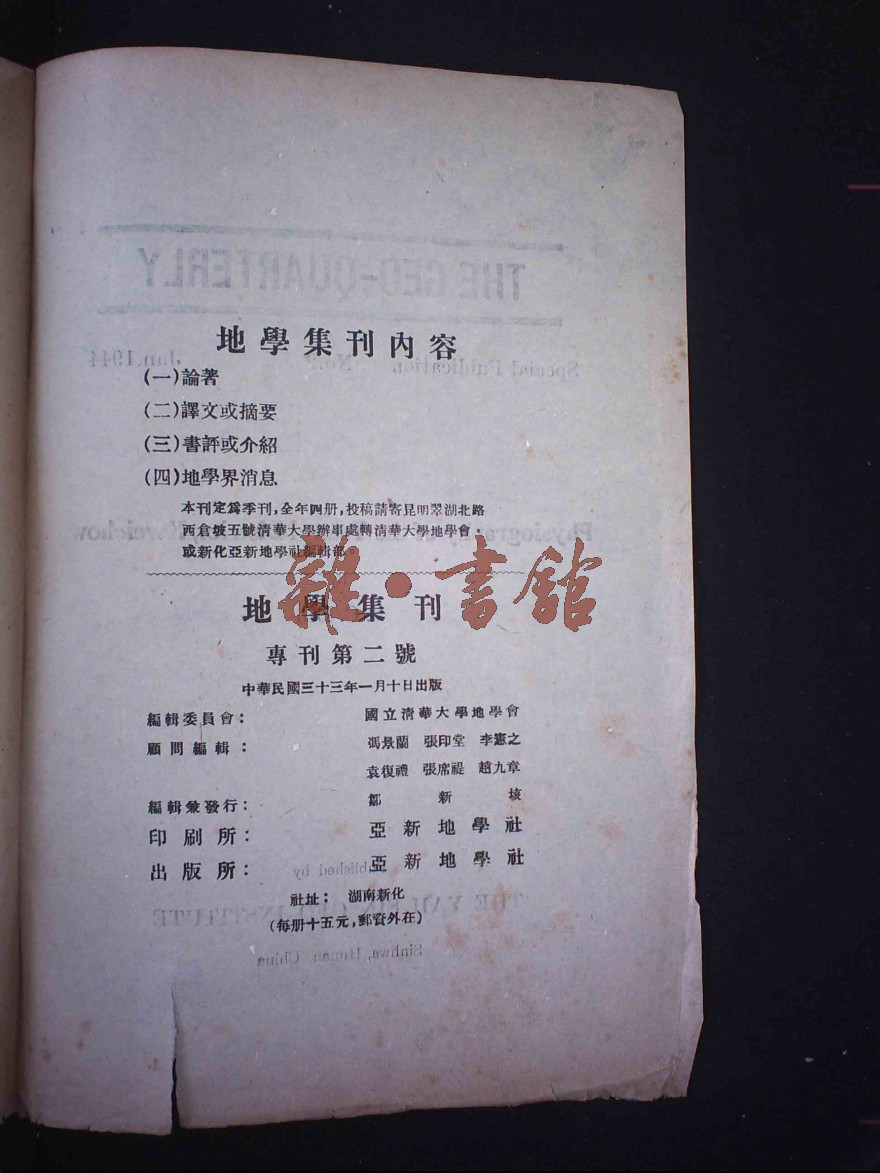 地學集刊內容
(一)論著
(二)譯文或摘要
(三)書評或介紹
(四)地學界消息
本刊定爲季刊,全年四册,投稿請寄昆明翠湖北路
西倉坡五號清華大學辦事處轉清華大學地學會,
或新化亞新地學社編輯部。
雜·書館
地學集刊
專刊第二號
中華民國三十三年一月十日出版
編輯委員會: 國立清華大學地學會
顧問編輯: 馮景蘭 張印堂 李憲之
袁復禮 張席禔 趙九章
編輯兼發行: 鄒新垓
印刷所: 亞新地學社
出版所: 亞新地學社
社址: 湖南新化
(每册十五元,郵資外在)
THE GEO-QUARTERLY
Special Publication No. Jan.1944
Physiography Kweichow
Published by
THE YAH INSTITUTE
Sinhwa, Hunan, China